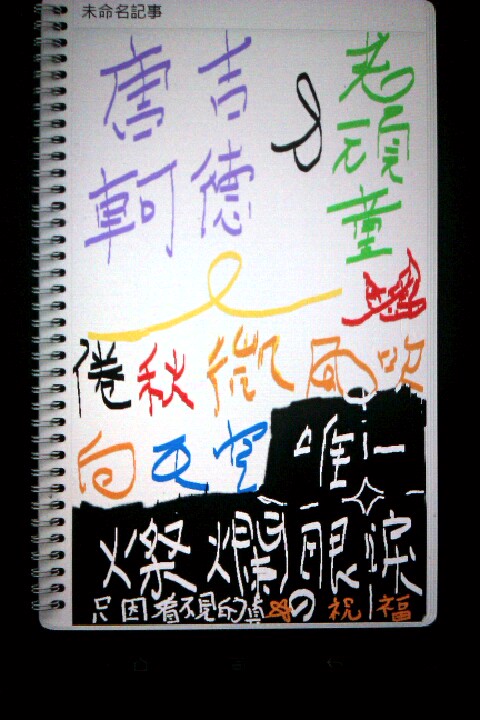 未命名記事
唐吉
軻德
&
老頑童
倦秋微風吹
向天空 唯一
燦爛眼淚
只因看不見的真の祝福